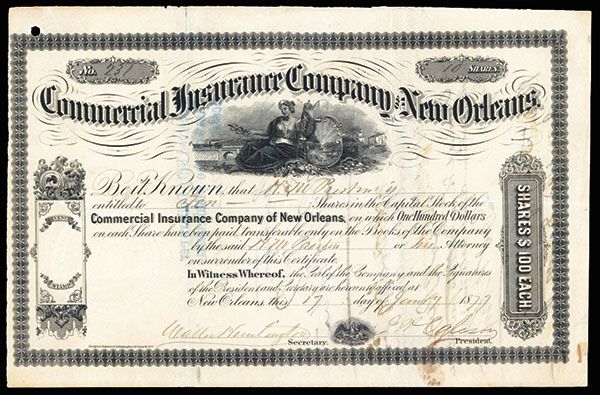 No. SHARES.
Commercial Insurance Company OF New Orleans.
Be it Known, that
entitled to Ten Shares in the Capital Stock of the
Commercial Insurance Company of New Orleans, on which One Hundred Dollars
on each Share have been paid, transferable only on the Books of the Company
by the said or his Attorney
on surrender of this Certificate.
In Witness Whereof, the Seal of the Company and the Signatures
of the President and Secretary are hereunto affixed at
New Orleans, this 17 day of 1877
Secretary. President.
REVENUE
STAMP.
SHARES $100 EACH.